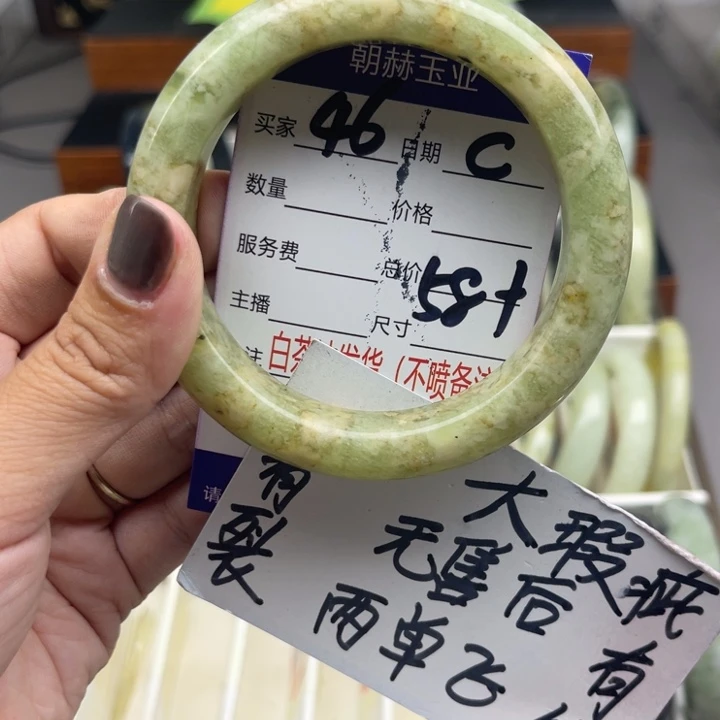 朝赫玉业
买家 46 日期 C
数量 价格
服务费 总价
主播 尺寸 58+
注 白茶 发货（不喷备注
请
有裂
大瑕疵
无售后 有
两单飞